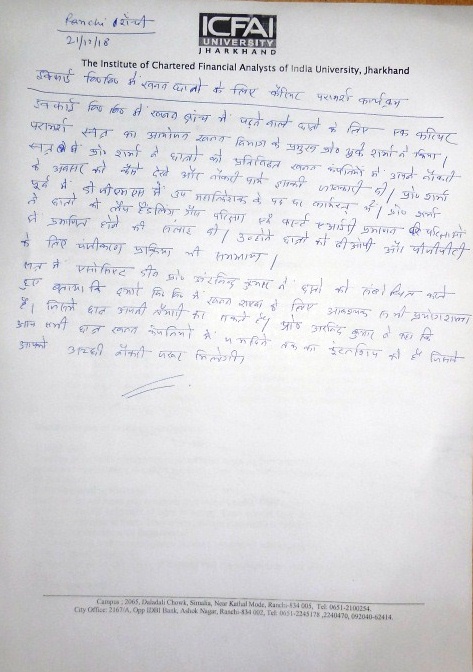 Ranchi राँची
21/12/18
ICFAI
UNIVERSITY
JHARKHAND
The Institute of Chartered Financial Analysts of India University, Jharkhand
इक्फाई वि॰वि॰ में खनन छात्रों के लिए कैरियर परामर्श कार्यक्रम
इक्फाई वि॰वि॰ में खनन ब्रांच में पढ़ने वाले छात्रों के लिए एक करियर
परामर्श सत्र का आयोजन खनन विभाग के प्रमुख प्रो॰ शर्मा ने किया।
सत्र में प्रो॰ शर्मा ने छात्रों को प्रतिष्ठित खनन कंपनियों में अपने नौकरी
के अवसर को कैसे देखें और नौकरी पाने इसकी जानकारी दी। प्रो॰ शर्मा
पूर्व में डीजीएमएस में उप महानिदेशक के पद पर कार्यरत थे। प्रो॰ शर्मा
ने छात्रों को लैंप हैंडलिंग और फर्स्ट एड प्रमाणन
से प्रमाणित होने की सलाह दी। उन्होंने छात्रों को और पीजीपीटी
के लिए पंजीकरण प्रक्रिया भी समझाया।
सत्र में एसोसिएट डीन प्रो॰ अरविन्द कुमार ने छात्रों को संबोधित करते
हुए बताया कि हमारे वि॰वि॰ में खनन शाखा के लिए आवश्यक सभी प्रयोगशाला
है। जिससे छात्र अपनी तैयारी कर सकते हैं। प्रो॰ अरविन्द कुमार ने कहा कि
आप सभी छात्र खनन कंपनियों में तक का इंटर्नशिप की है जिससे
आपको अच्छी नौकरी जरूर मिलेगी।
Campus : 2065, Daladali Chowk, Simalia, Near Kathal Mode, Ranchi-834 005, Tel: 0651-2100254.
City Office: 2167/A, Opp IDBI Bank, Ashok Nagar, Ranchi-834 002, Tel: 0651-2245178 ,2240470, 092040-62414.